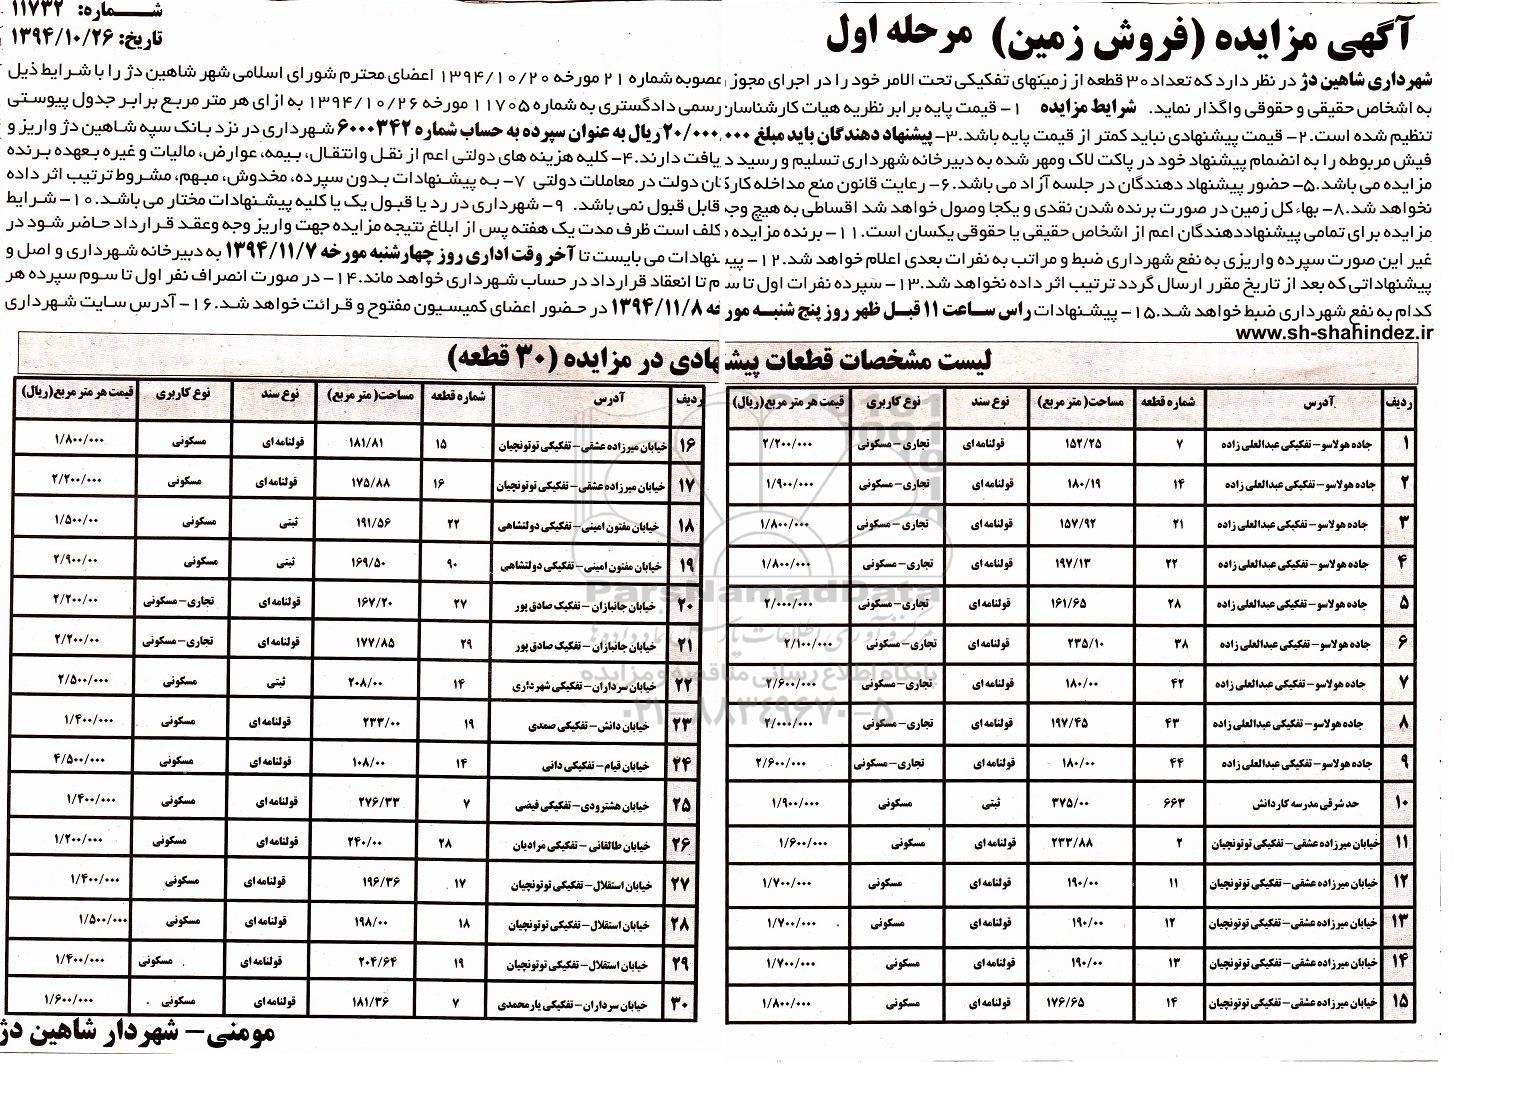 آگهی مزایده (فروش زمین) مرحله اول
شماره: ۱۱۷۳۲
تاریخ: ۱۳۹۴/۱۰/۲۶
شهرداری شاهین دژ در نظر دارد که تعداد ۳۰ قطعه از زمینهای تفکیکی تحت الامر خود را در اجرای مجوز مصوبه شماره ۲۱ مورخه ۱۳۹۴/۱۰/۲۰ اعضای محترم شورای اسلامی شهر شاهین دژ را با شرایط ذیل
به اشخاص حقیقی و حقوقی واگذار نماید. شرایط مزایده ۱- قیمت پایه برابر نظریه هیات کارشناسان رسمی دادگستری به شماره ۱۱۷۰۵ مورخه ۱۳۹۴/۱۰/۲۶ به ازای هر متر مربع برابر جدول پیوستی
تنظیم شده است. ۲- قیمت پیشنهادی نباید کمتر از قیمت پایه باشد. ۳- پیشنهاد دهندگان باید مبلغ ۲۰/۰۰۰,۰۰۰ ریال به عنوان سپرده به حساب شماره ۶۰۰۰۳۴۲ شهرداری در نزد بانک سپه شاهین دژ واریز و
فیش مربوطه را به انضمام پیشنهاد خود در پاکت لاک ومهر شده به دبیرخانه شهرداری تسلیم و رسید دریافت دارند. ۴- کلیه هزینه های دولتی اعم از نقل وانتقال، بیمه، عوارض، مالیات و غیره بعهده برنده
مزایده می باشد. ۵- حضور پیشنهاد دهندگان در جلسه آزاد می باشد. ۶- رعایت قانون منع مداخله کارکنان دولت در معاملات دولتی ۷- به پیشنهادات بدون سپرده، مخدوش، مبهم، مشروط ترتیب اثر داده
نخواهد شد. ۸- بهاء کل زمین در صورت برنده شدن نقدی و یکجا وصول خواهد شد اقساطی به هیچ وجه قابل قبول نمی باشد. ۹- شهرداری در رد یا قبول یک یا کلیه پیشنهادات مختار می باشد. ۱۰- شرایط
مزایده برای تمامی پیشنهاددهندگان اعم از اشخاص حقیقی یا حقوقی یکسان است. ۱۱- برنده مزایده مکلف است ظرف مدت یک هفته پس از ابلاغ نتیجه مزایده جهت واریز وجه وعقد قرارداد حاضر شود در
غیر این صورت سپرده واریزی به نفع شهرداری ضبط و مراتب به نفرات بعدی اعلام خواهد شد. ۱۲- پیشنهادات می بایست تا آخر وقت اداری روز چهارشنبه مورخه ۱۳۹۴/۱۱/۷ به دبیرخانه شهرداری و اصل و
پیشنهاداتی که بعد از تاریخ مقرر ارسال گردد ترتیب اثر داده نخواهد شد. ۱۳- سپرده نفرات اول تا سوم تا انعقاد قرارداد در حساب شهرداری خواهد ماند. ۱۴- در صورت انصراف نفر اول تا سوم سپرده هر
کدام به نفع شهرداری ضبط خواهد شد. ۱۵- پیشنهادات راس ساعت ۱۱ قبل ظهر روز پنج شنبه مورخه ۱۳۹۴/۱۱/۸ در حضور اعضای کمیسیون مفتوح و قرائت خواهد شد. ۱۶- آدرس سایت شهرداری
www.sh-shahindez.ir
لیست مشخصات قطعات پیشنهادی در مزایده (۳۰ قطعه)
ردیف آدرس شماره قطعه مساحت (متر مربع) نوع سند نوع کاربری قیمت هر متر مربع (ریال)
۱ جاده هولاسو – تفکیکی عبدالعلی زاده ۷ ۱۵۲/۲۵ قولنامه ای تجاری – مسکونی ۲/۲۰۰/۰۰۰
۲ جاده هولاسو – تفکیکی عبدالعلی زاده ۱۴ ۱۸۰/۱۹ قولنامه ای تجاری – مسکونی ۱/۹۰۰/۰۰۰
۳ جاده هولاسو – تفکیکی عبدالعلی زاده ۲۱ ۱۵۷/۹۲ قولنامه ای تجاری – مسکونی ۱/۸۰۰/۰۰۰
۴ جاده هولاسو – تفکیکی عبدالعلی زاده ۲۲ ۱۹۷/۱۳ قولنامه ای تجاری – مسکونی ۱/۸۰۰/۰۰۰
۵ جاده هولاسو – تفکیکی عبدالعلی زاده ۲۸ ۱۶۱/۶۵ قولنامه ای تجاری – مسکونی ۲/۰۰۰/۰۰۰
۶ جاده هولاسو – تفکیکی عبدالعلی زاده ۳۸ ۲۳۵/۱۰ قولنامه ای تجاری – مسکونی ۲/۱۰۰/۰۰۰
۷ جاده هولاسو – تفکیکی عبدالعلی زاده ۴۲ ۱۸۰/۰۰ قولنامه ای تجاری – مسکونی ۲/۶۰۰/۰۰۰
۸ جاده هولاسو – تفکیکی عبدالعلی زاده ۴۳ ۱۹۷/۴۵ قولنامه ای تجاری – مسکونی ۲/۰۰۰/۰۰۰
۹ جاده هولاسو – تفکیکی عبدالعلی زاده ۴۴ ۱۸۰/۰۰ قولنامه ای تجاری – مسکونی ۲/۶۰۰/۰۰۰
۱۰ حد شرقی مدرسه کاردانش ۶۶۳ ۳۷۵/۰۰ ثبتی مسکونی ۱/۹۰۰/۰۰۰
۱۱ خیابان میرزاده عشقی – تفکیکی توتونچیان ۲ ۲۳۳/۸۸ قولنامه ای مسکونی ۱/۶۰۰/۰۰۰
۱۲ خیابان میرزاده عشقی – تفکیکی توتونچیان ۱۱ ۱۹۰/۰۰ قولنامه ای مسکونی ۱/۷۰۰/۰۰۰
۱۳ خیابان میرزاده عشقی – تفکیکی توتونچیان ۱۲ ۱۹۰/۰۰ قولنامه ای مسکونی ۱/۷۰۰/۰۰۰
۱۴ خیابان میرزاده عشقی – تفکیکی توتونچیان ۱۳ ۱۹۰/۰۰ قولنامه ای مسکونی ۱/۷۰۰/۰۰۰
۱۵ خیابان میرزاده عشقی – تفکیکی توتونچیان ۱۴ ۱۷۶/۶۵ قولنامه ای مسکونی ۱/۸۰۰/۰۰۰
ردیف آدرس شماره قطعه مساحت (متر مربع) نوع سند نوع کاربری قیمت هر متر مربع (ریال)
۱۶ خیابان میرزاده عشقی – تفکیکی توتونچیان ۱۵ ۱۸۱/۸۱ قولنامه ای مسکونی ۱/۸۰۰/۰۰۰
۱۷ خیابان میرزاده عشقی – تفکیکی توتونچیان ۱۶ ۱۷۵/۸۸ قولنامه ای مسکونی ۲/۲۰۰/۰۰۰
۱۸ خیابان مفتون امینی – تفکیکی دولتشاهی ۲۲ ۱۹۱/۵۶ ثبتی مسکونی ۱/۵۰۰/۰۰
۱۹ خیابان مفتون امینی – تفکیکی دولتشاهی ۹۰ ۱۶۹/۵۰ ثبتی مسکونی ۲/۹۰۰/۰۰
۲۰ خیابان جانبازان – تفکیک صادق پور ۲۷ ۱۶۷/۲۰ قولنامه ای تجاری – مسکونی ۲/۲۰۰/۰۰
۲۱ خیابان جانبازان – تفکیک صادق پور ۲۹ ۱۷۷/۸۵ قولنامه ای تجاری – مسکونی ۲/۲۰۰/۰۰
۲۲ خیابان سرداران – تفکیکی شهرداری ۱۴ ۲۰۸/۰۰ ثبتی مسکونی ۲/۵۰۰/۰۰۰
۲۳ خیابان دانش – تفکیکی صمدی ۱۹ ۲۳۳/۰۰ قولنامه ای مسکونی ۱/۴۰۰/۰۰۰
۲۴ خیابان قیام – تفکیکی دانی ۱۴ ۱۰۸/۰۰ قولنامه ای مسکونی ۴/۵۰۰/۰۰۰
۲۵ خیابان هشترودی – تفکیکی فیضی ۷ ۲۷۶/۳۳ قولنامه ای مسکونی ۱/۴۰۰/۰۰۰
۲۶ خیابان طالقانی – تفکیکی مرادیان ۲۸ ۲۴۰/۰۰ قولنامه ای مسکونی ۱/۲۰۰/۰۰۰
۲۷ خیابان استقلال – تفکیکی توتونچیان ۱۷ ۱۹۶/۳۶ قولنامه ای مسکونی ۱/۴۰۰/۰۰۰
۲۸ خیابان استقلال – تفکیکی توتونچیان ۱۸ ۱۹۸/۰۰ قولنامه ای مسکونی ۱/۵۰۰/۰۰۰
۲۹ خیابان استقلال – تفکیکی توتونچیان ۱۹ ۲۰۴/۶۴ قولنامه ای مسکونی ۱/۴۰۰/۰۰۰
۳۰ خیابان سرداران – تفکیکی یارمحمدی ۷ ۱۸۱/۳۶ قولنامه ای مسکونی ۱/۶۰۰/۰۰۰
مومنی – شهردار شاهین دژ
ParsNamadData
پایگاه اطلاع رسانی مناقصه و مزایده
۰۲۱-۸۸۳۴۹۶۷۰-۵